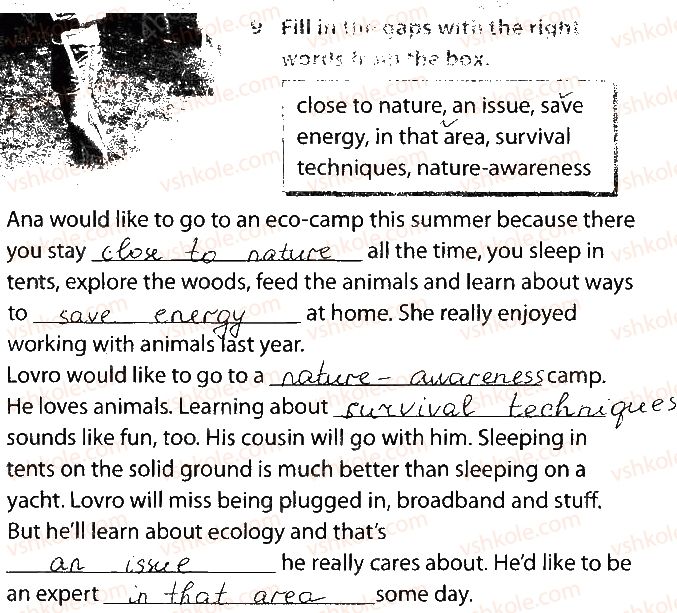 9 Fill in the gaps with the right
words from the box.
close to nature, an issue, save
energy, in that area, survival
techniques, nature-awareness
Ana would like to go to an eco-camp this summer because there
you stay close to nature all the time, you sleep in
tents, explore the woods, feed the animals and learn about ways
to save energy at home. She really enjoyed
working with animals last year.
Lovro would like to go to a nature-awareness camp.
He loves animals. Learning about survival techniques
sounds like fun, too. His cousin will go with him. Sleeping in
tents on the solid ground is much better than sleeping on a
yacht. Lovro will miss being plugged in, broadband and stuff.
But he'll learn about ecology and that's
an issue he really cares about. He'd like to be
an expert in that area some day.